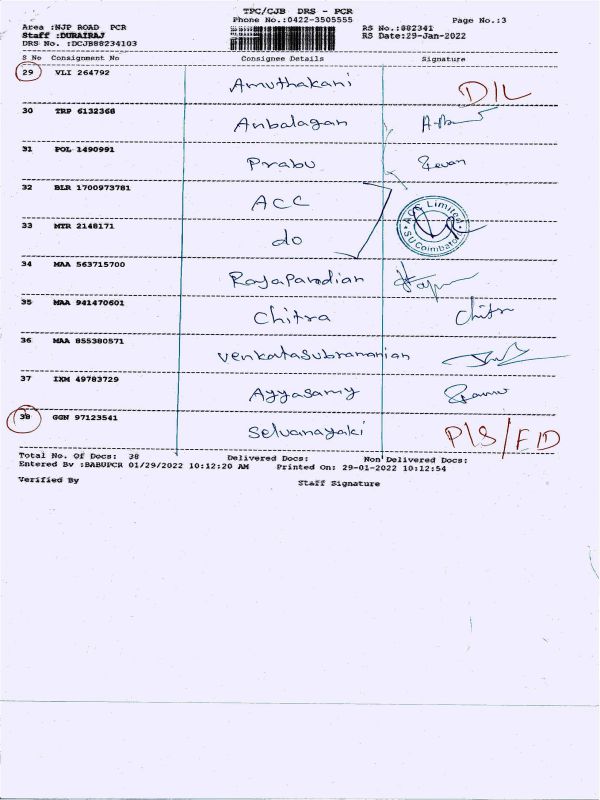 TPC/CJB DRS - PCR
Phone No.:0422-3505555 Page No.:3
Area :NJP ROAD PCR RS No.:882341
Staff :DURAIRAJ RS Date:29-Jan-2022
DRS No. :DCJB88234103
S No Consignment No Consignee Details Signature
29 VLI 264792 Amuthakani D/L
30 TRP 6132368 Anbalagan
31 POL 1490991 Prabu
32 BLR 1700973781 ACC
ACC Limited
33 MTR 2148171 do
Coimbatore
34 MAA 563715700 Rajapandian
35 MAA 941470601 Chitra Chitra
36 MAA 855380571 Venkatasubramanian
37 IXM 49783729 Ayyasamy
38 GGN 97123541 Selvanayaki P/S/FID
Total No. Of Docs: 38 Delivered Docs: Non Delivered Docs:
Entered By :BABUPCR 01/29/2022 10:12:20 AM Printed On: 29-01-2022 10:12:54
Verified By Staff Signature